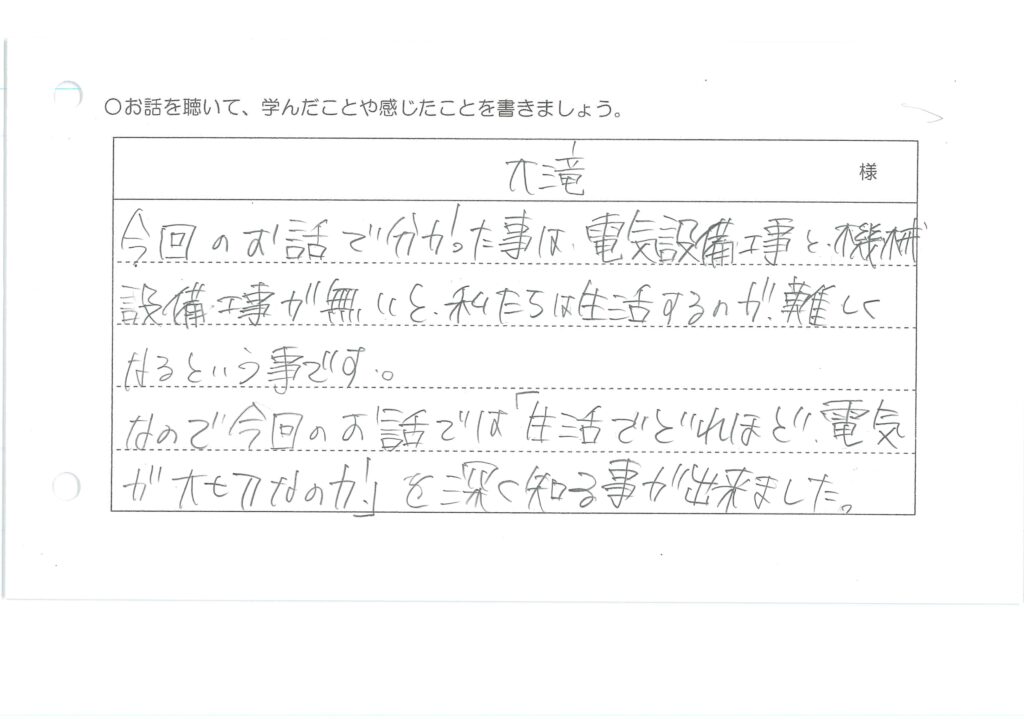 〇お話を聴いて、学んだことや感じたことを書きましょう。
大滝 様
今回のお話で分かった事は、電気設備工事と、機械
設備工事が無いと、私たちは生活するのが、難しく
なるという事です。
なので今回のお話では「生活でどれほど、電気
が大切なのか」を深く知る事が出来ました。